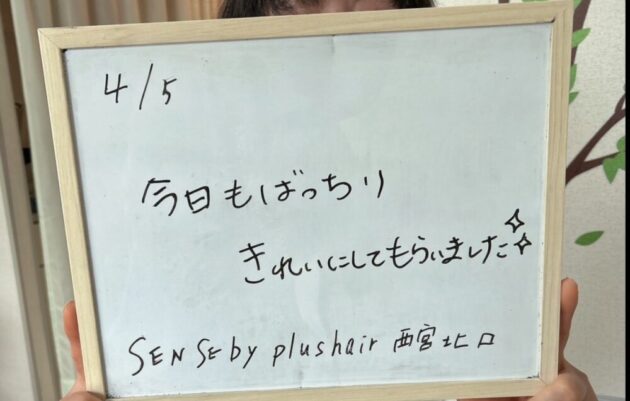 4/5
今日もばっちり
きれいにしてもらいました✧✧
SENSE by plushair 西宮北口